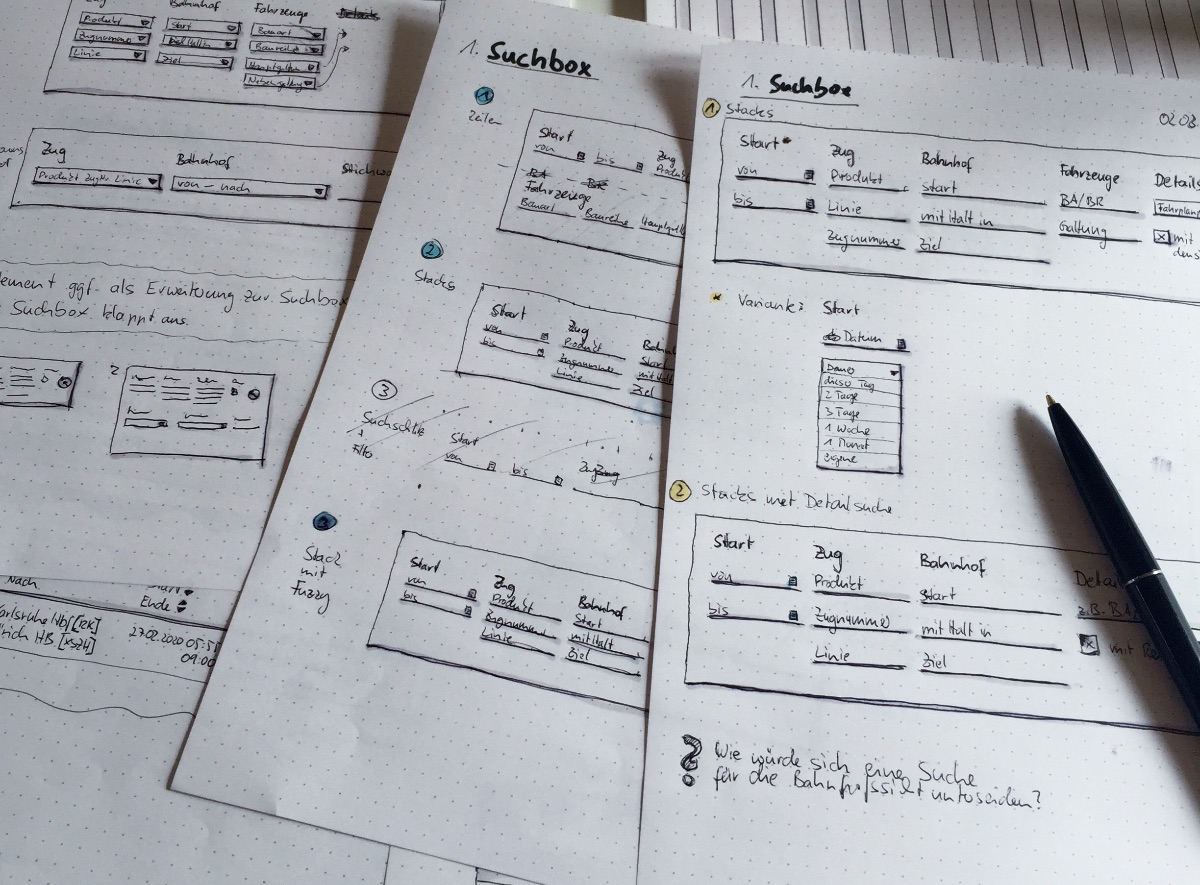 Zug
Bahnhof
Fahrzeuge
Details
Produkt
Zugnummer
Linie
Start
mit Halt in
Ziel
Bauart
Baureihe
Hauptgattung
Nebengattung
Zug
Bahnhof
Stichwo
Produkt ZugNr. Linie
von – nach
lement ggf. als Erweiterung zur Suchbox
Suchbox klappt aus.
2
Nach
Start
Ende
Karlsruhe Hbf [RK]
rich HB. [XSZH]
27.02.2020 05:51
09:00
1. Suchbox
1
Zeilen
Start
von
bis
Zug
Produk
BA
BR
Fahrzeuge
Bauart
Baureihe
Hauptgatt
2
Stacks
Start
von
bis
Zug
Produkt
Zugnummer
Linie
Bahn
Start
mit Halt
Ziel
3
Suchschlitz
+
Filter
Start
von
bis
Zug
3
Stack
mit
Fuzzy
Start
von
bis
Zug
Produkt
Zugnummer
Linie
Bahnhof
Start
mit Halt
Ziel
1. Suchbox
1. Stacks
02.03
Start*
von
bis
Zug
Produkt
Linie
Zugnummer
Bahnhof
Start
mit Halt in
Ziel
Fahrzeuge
BA/BR
Gattung
Details
Fahrplan
x mit
* Variante: Start
Datum
Dauer
dieser Tag
2 Tage
3 Tage
1 Woche
1 Monat
eigene
2 Stacks mit Detailsuche
Start
von
bis
Zug
Produkt
Zugnummer
Linie
Bahnhof
Start
mit Halt in
Ziel
Detai
z.B. BA
x mit
? Wie würde sich eine Suche
für die Bahnhofssicht unterscheiden?